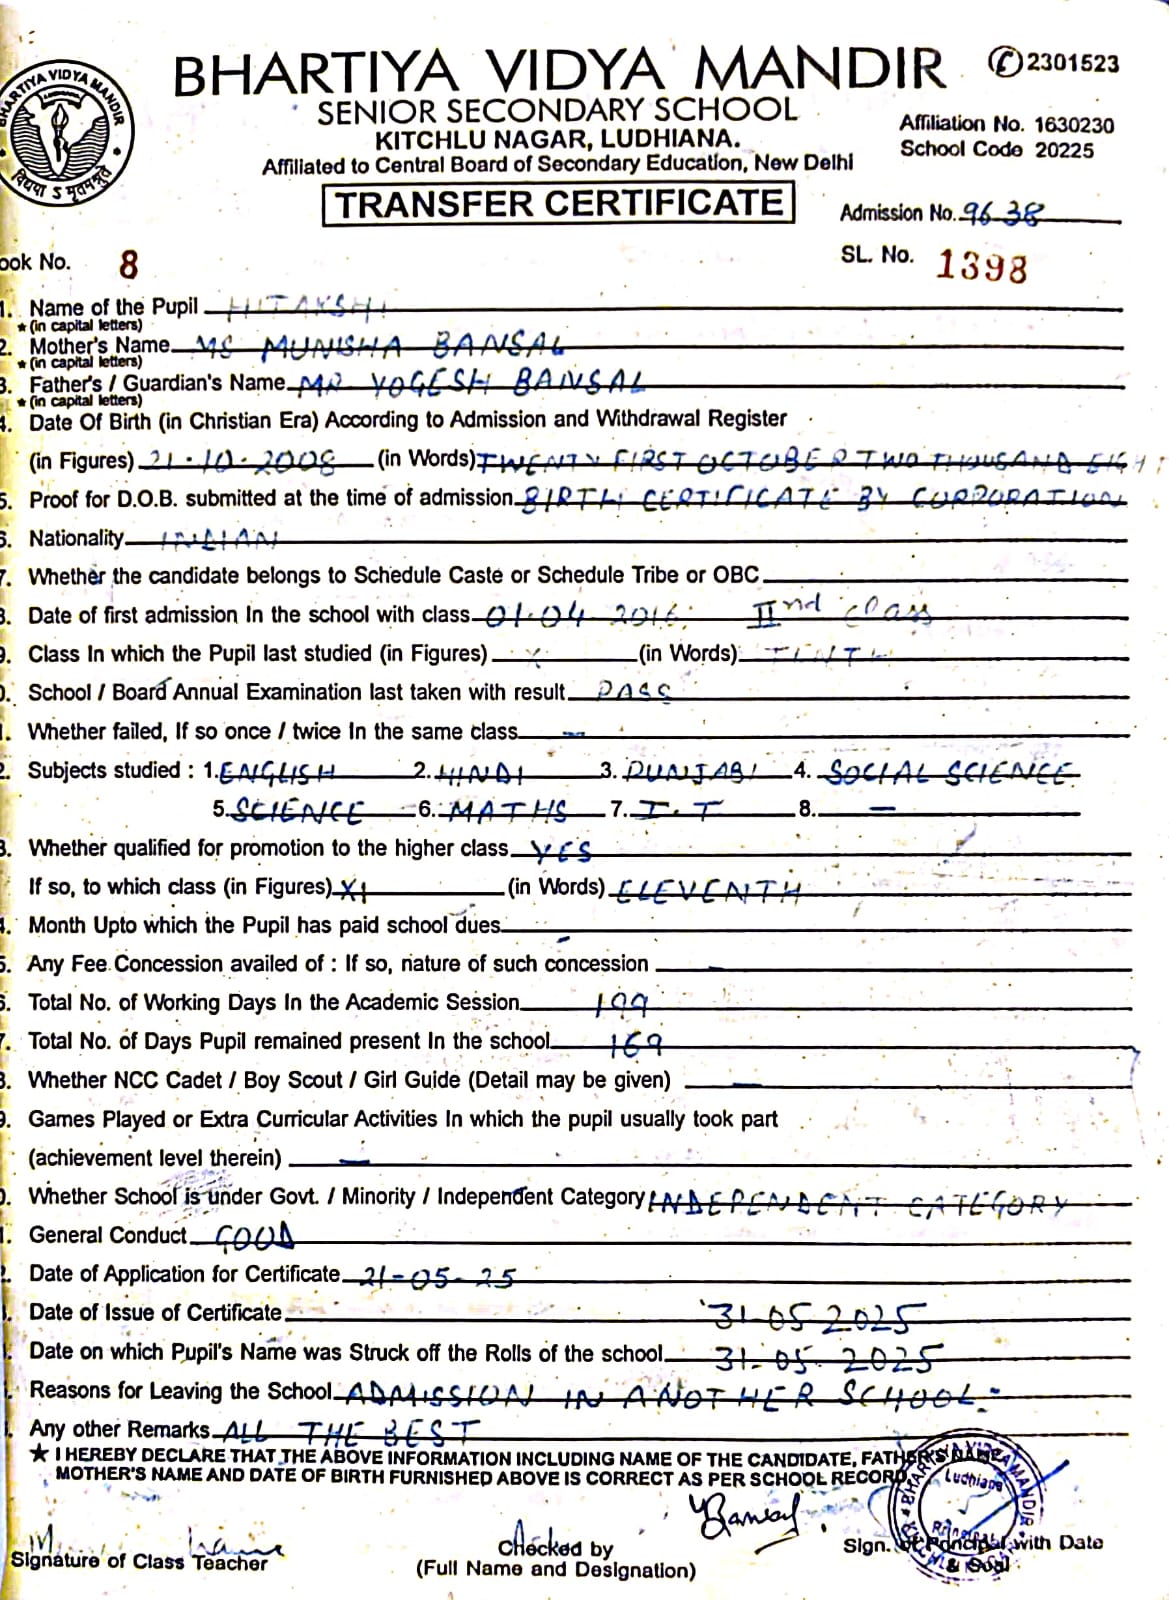 BHARTIYA VIDYA MANDIR ✆2301523
SENIOR SECONDARY SCHOOL
KITCHLU NAGAR, LUDHIANA.
Affiliation No. 1630230
Affiliated to Central Board of Secondary Education, New Delhi
School Code 20225
BHARTIYA VIDYA MANDIR
TRANSFER CERTIFICATE
Admission No. 9638
ook No. 8
SL. No. 1398
1. Name of the Pupil HITAKSHI
★ (in capital letters)
2. Mother's Name MS MUNISHA BANSAL
★ (in capital letters)
3. Father's / Guardian's Name MR YOGESH BANSAL
★ (in capital letters)
4. Date Of Birth (in Christian Era) According to Admission and Withdrawal Register
(in Figures) 21.10.2008 (in Words) TWENTY FIRST OCTOBER TWO THOUSAND EIGHT
5. Proof for D.O.B. submitted at the time of admission BIRTH CERTIFICATE BY CORPORATION
6. Nationality INDIAN
7. Whether the candidate belongs to Schedule Caste or Schedule Tribe or OBC
8. Date of first admission In the school with class 01.04 2016, IInd class
9. Class In which the Pupil last studied (in Figures) X (in Words) TENTH
0. School / Board Annual Examination last taken with result PASS
1. Whether failed, If so once / twice In the same class —
2. Subjects studied : 1. ENGLISH 2. HINDI 3. PUNJABI 4. SOCIAL SCIENCE
5. SCIENCE 6. MATHS 7. I.T 8. —
3. Whether qualified for promotion to the higher class YES
If so, to which class (in Figures) XI (in Words) ELEVENTH
4. Month Upto which the Pupil has paid school dues
5. Any Fee Concession availed of : If so, nature of such concession —
6. Total No. of Working Days In the Academic Session 199
7. Total No. of Days Pupil remained present In the school 169
8. Whether NCC Cadet / Boy Scout / Girl Guide (Detail may be given) —
9. Games Played or Extra Curricular Activities In which the pupil usually took part
(achievement level therein) —
0. Whether School is under Govt. / Minority / Independent Category INDEPENDENT CATEGORY
1. General Conduct GOOD
2. Date of Application for Certificate 21-05-25
Date of Issue of Certificate 31-05 2025
Date on which Pupil's Name was Struck off the Rolls of the school 31-05. 2025
Reasons for Leaving the School ADMISSION IN ANOTHER SCHOOL.
Any other Remarks ALL THE BEST
★ I HEREBY DECLARE THAT THE ABOVE INFORMATION INCLUDING NAME OF THE CANDIDATE, FATHER'S NAME,
MOTHER'S NAME AND DATE OF BIRTH FURNISHED ABOVE IS CORRECT AS PER SCHOOL RECORD.
Ludhiana
Principal
Bansal
Signature of Class Teacher
Checked by
(Full Name and Designation)
Sign. of Principal with Date
& Seal